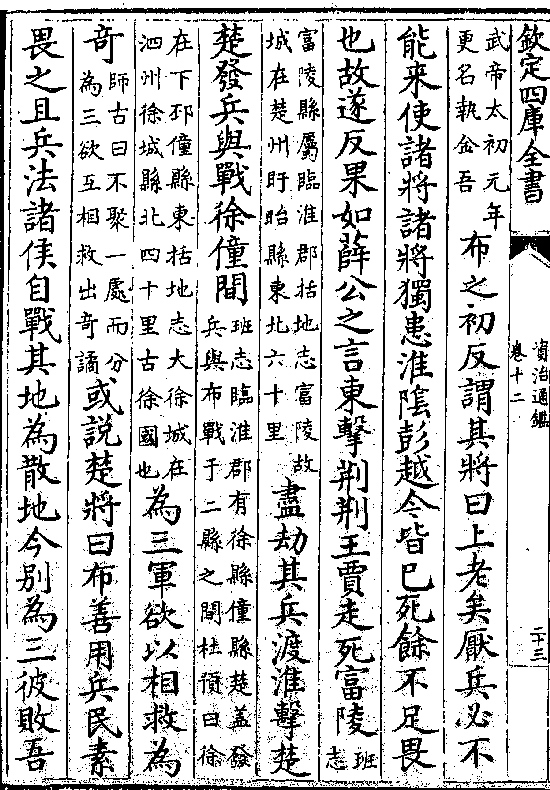 欽定四庫全書
資治通鑑
卷十二
二十三
武帝太初元年
更名執金吾
布之初反謂其將曰上老矣厭兵必不
能來使諸將諸將獨患淮陰彭越今皆已死餘不足畏
也故遂反果如薛公之言東擊荆荆王賈走死富陵
班
志
富陵縣屬臨淮郡括地志富陵故
城在楚州盱眙縣東北六十里
盡劫其兵渡淮擊楚
楚發兵與戰徐僮間
班志臨淮郡有徐縣僮縣楚蓋發
兵與布戰于二縣之間杜預曰徐
在下邳僮縣東括地志大徐城在
泗州徐城縣北四十里古徐國也
為三軍欲以相救為
奇
師古曰不聚一處而分
為三欲互相救出奇譎
或說楚將曰布善用兵民素
畏之且兵法諸侯自戰其地為散地今别為三彼敗吾